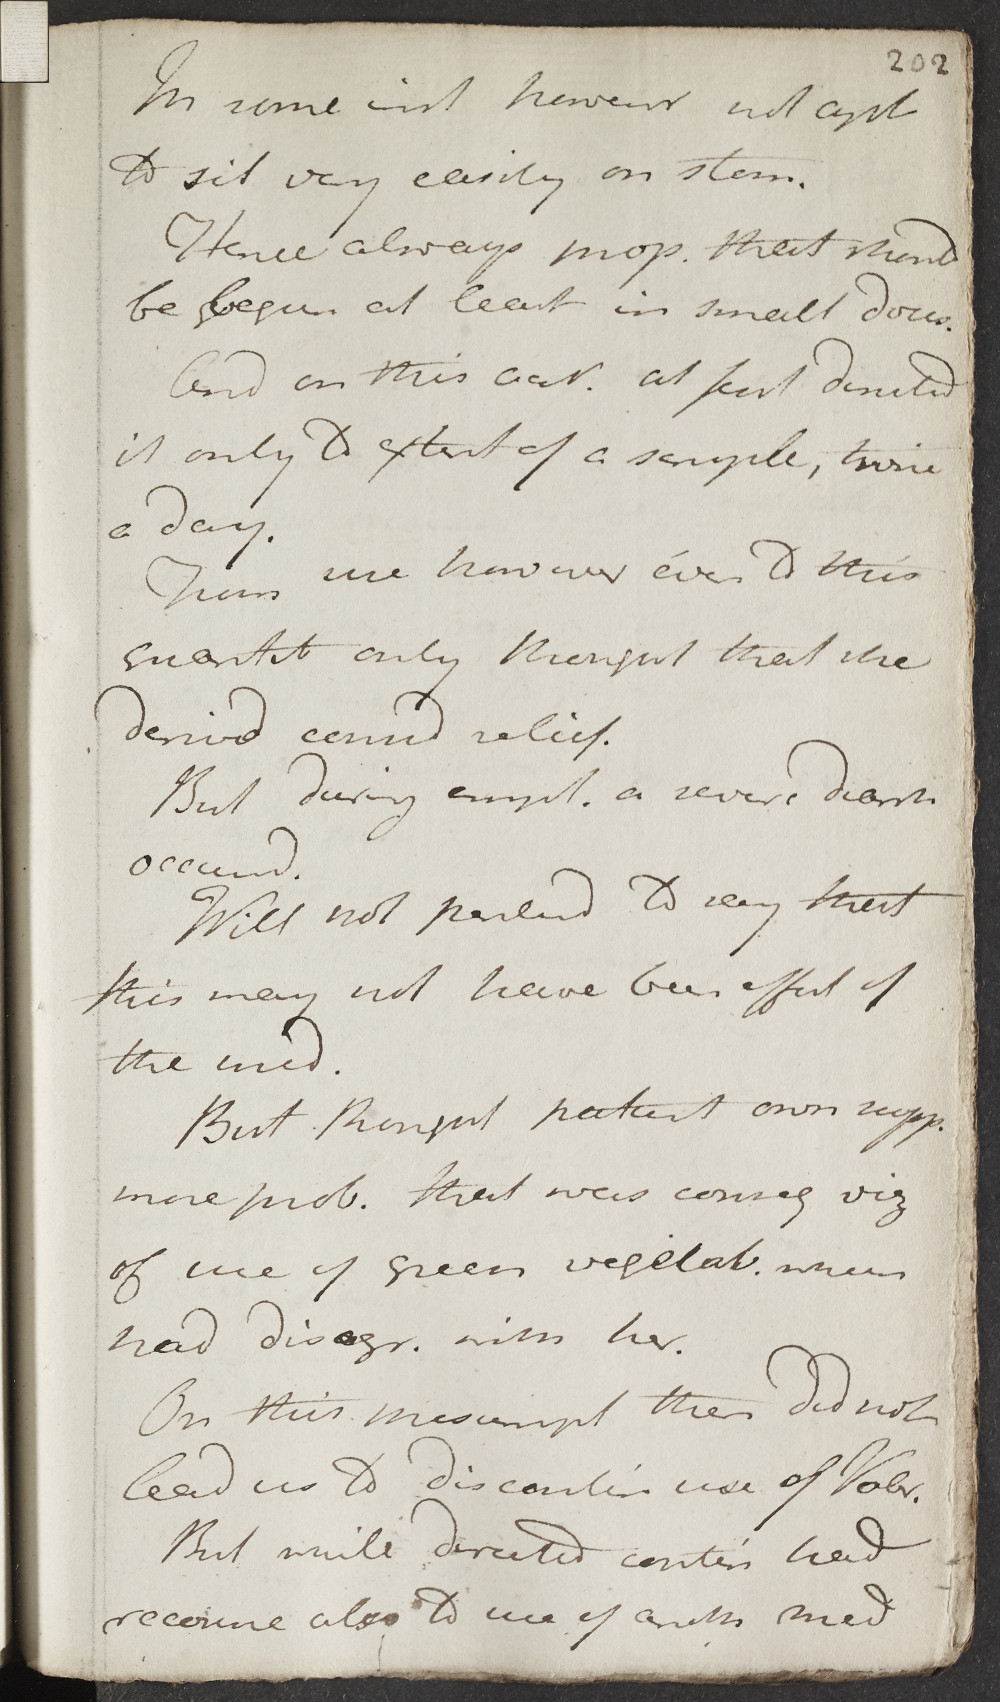 202
In some inst however not apt
to sit very easily on stom.
Hence always prop. that should
be begun at least in small doses.
And on this acct. at first directed
it only to extent of a scruple, twice
a day.
From use however even to this
quantit only thought that she
derived considd relief.
But during empl. a severe diarrh
occurred.
Will not pretend to say that
this may not have been effect of
the med.
But thought patient own supp.
more prob. that was conseq viz
of use of green vegetab. when
had disagr. with her.
On this presumpt then did not
lead us to discontin use of Valer.
But while directed contin had
recourse also to use of anoth med